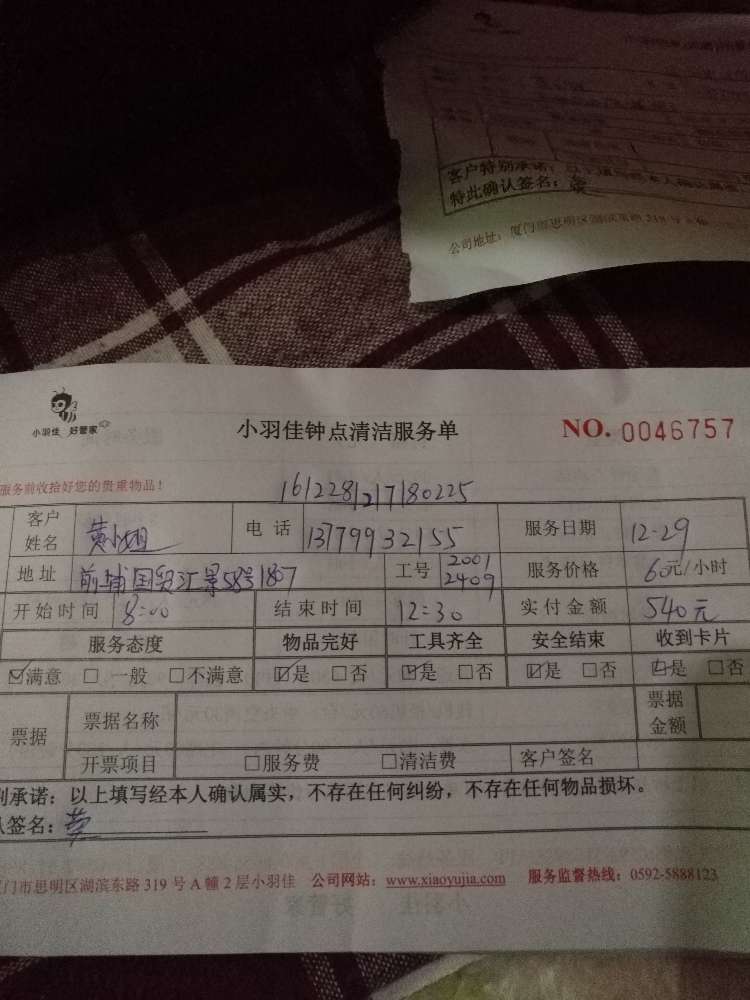 客户特别承诺：
特此确认签名：
公司地址：厦门市思明区湖滨东路319号A幢
小羽佳 好管家
小羽佳钟点清洁服务单
NO. 0046757
服务前收拾好您的贵重物品！
1612281217180225
客户姓名 黄小姐 电话 13779932155 服务日期 12-29
地址 前埔国贸汇景58号1807 工号 2001 2409 服务价格 60元/小时
开始时间 8:00 结束时间 12:30 实付金额 540元
服务态度 物品完好 工具齐全 安全结束 收到卡片
☑满意 □一般 □不满意 ☑是 □否 ☑是 □否 ☑是 □否 ☑是 □否
票据 票据名称 票据金额
开票项目 □服务费 □清洁费 客户签名
别承诺：以上填写经本人确认属实，不存在任何纠纷，不存在任何物品损坏。
认签名：黄
门市思明区湖滨东路319号A幢2层小羽佳 公司网站：www.xiaoyujia.com 服务监督热线：0592-5888123